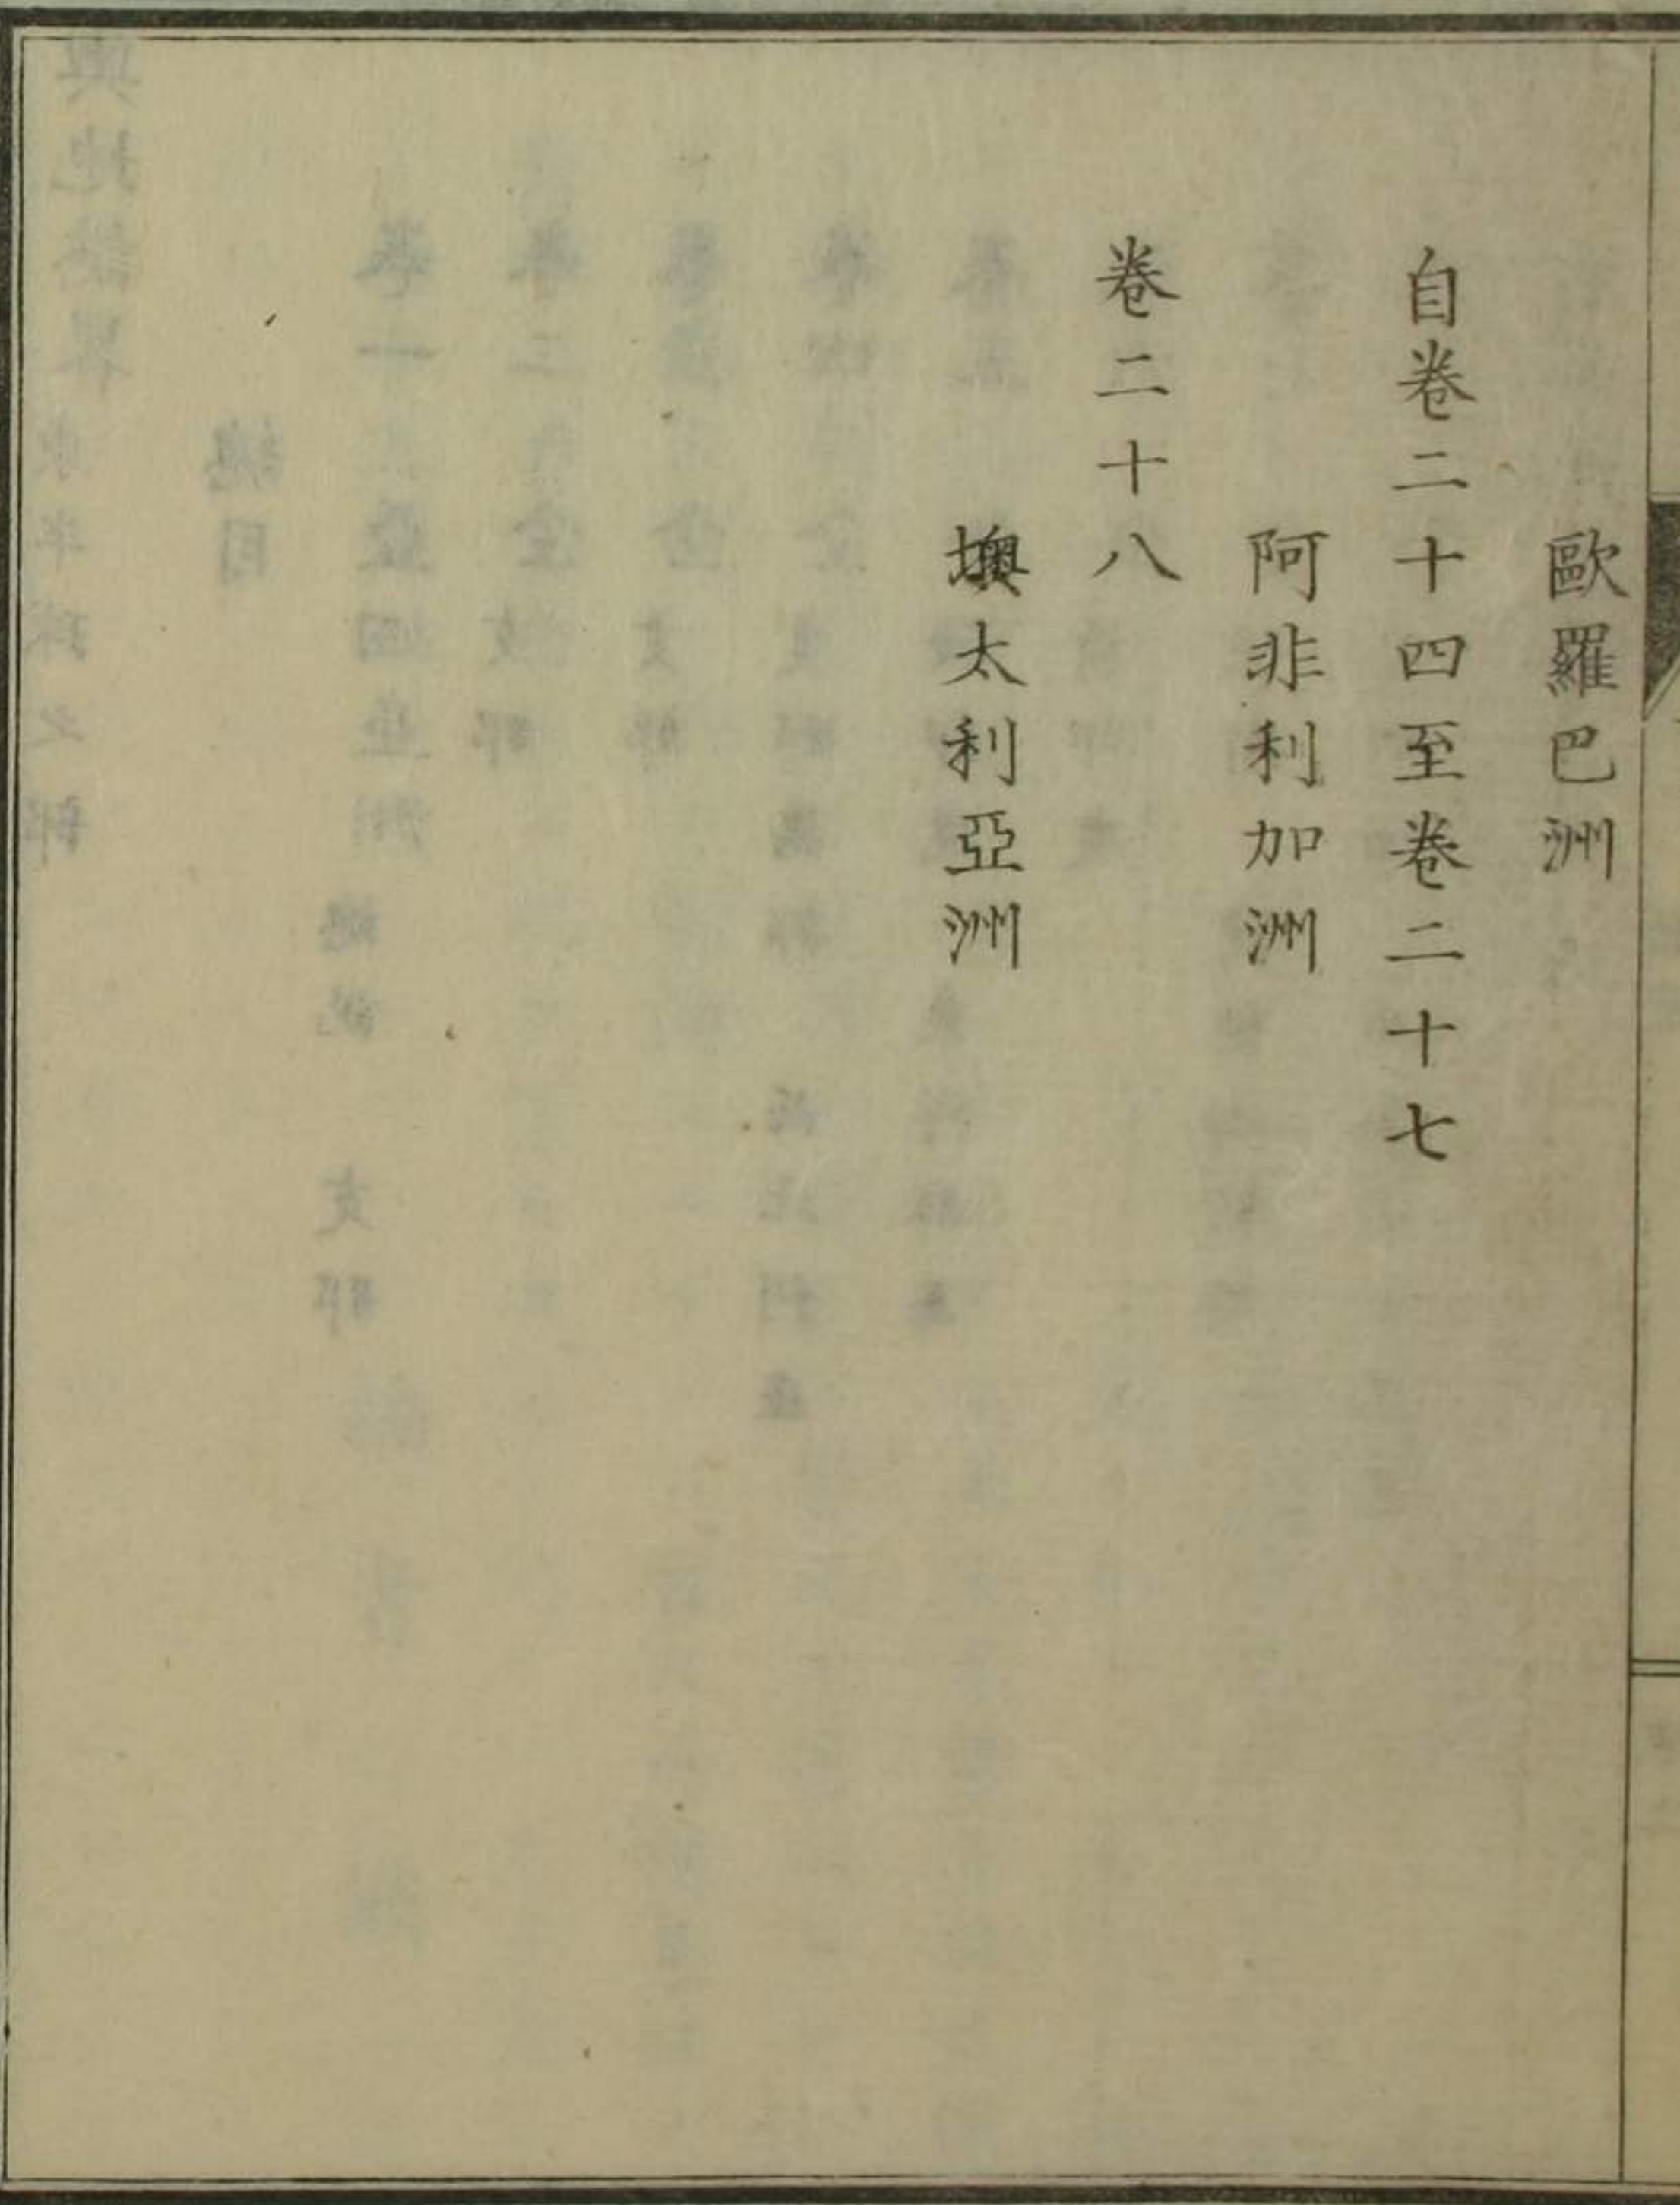 歐羅巴洲
自卷二十四至卷二十七
阿非利加洲
卷二十八
墺太利亞洲